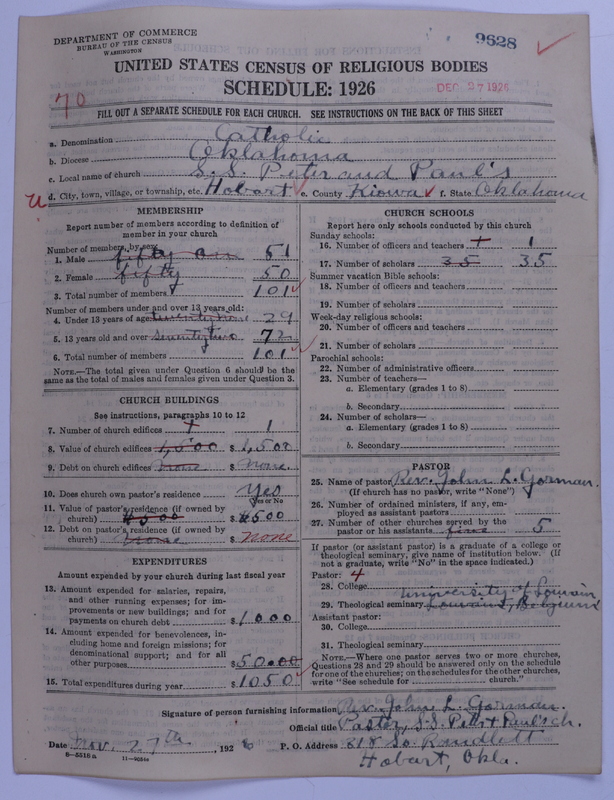 DEPARTMENT OF COMMERCE
BUREAU OF THE CENSUS
WASHINGTON
9628
UNITED STATES CENSUS OF RELIGIOUS BODIES
SCHEDULE: 1926
DEC 27 1926
70
FILL OUT A SEPARATE SCHEDULE FOR EACH CHURCH. SEE INSTRUCTIONS ON THE BACK OF THIS SHEET
a. Denomination Catholic
b. Diocese Oklahoma
c. Local name of church S.S. Peter and Paul's
d. City, town, village, or township, etc. Hobart e. County Kiowa f. State Oklahoma
MEMBERSHIP
Report number of members according to definition of
member in your church
Number of members, by sex:
1. Male fifty one 51
2. Female fifty 50
3. Total number of members 101
Number of members under and over 13 years old:
4. Under 13 years of age twenty nine 29
5. 13 years old and over seventy two 72
6. Total number of members 101
NOTE.—The total given under Question 6 should be the
same as the total of males and females given under Question 3.
CHURCH BUILDINGS
See instructions, paragraphs 10 to 12
7. Number of church edifices 1
8. Value of church edifices 1,500 $ 1,500
9. Debt on church edifices none $ none
10. Does church own pastor's residence Yes
Yes or No
11. Value of pastor's residence (if owned by
church) $500 $ 500
12. Debt on pastor's residence (if owned by
church) none $ none
EXPENDITURES
Amount expended by your church during last fiscal year
13. Amount expended for salaries, repairs,
and other running expenses; for im-
provements or new buildings; and for
payments on church debt $ 1000
14. Amount expended for benevolences, in-
cluding home and foreign missions; for
denominational support; and for all
other purposes $ 50.00
15. Total expenditures during year $ 1050
CHURCH SCHOOLS
Report here only schools conducted by this church
Sunday schools:
16. Number of officers and teachers 1
17. Number of scholars 35 35
Summer vacation Bible schools:
18. Number of officers and teachers
19. Number of scholars
Week-day religious schools:
20. Number of officers and teachers
21. Number of scholars
Parochial schools:
22. Number of administrative officers
23. Number of teachers—
a. Elementary (grades 1 to 8)
b. Secondary
24. Number of scholars—
a. Elementary (grades 1 to 8)
b. Secondary
PASTOR
25. Name of pastor Rev. John L. Gorman.
(If church has no pastor, write "None")
26. Number of ordained ministers, if any, em-
ployed as assistant pastors
27. Number of other churches served by the
pastor or his assistants five 5
If pastor (or assistant pastor) is a graduate of a college or
theological seminary, give name of institution below. (If
not a graduate, write "No" in the space indicated.)
Pastor: 4
28. College
University of Louvain
29. Theological seminary Louvain, Belgium
Assistant pastor:
30. College
31. Theological seminary
NOTE.—Where one pastor serves two or more churches,
Questions 28 and 29 should be answered only on the schedule
for one of the churches; on the schedules for the other churches,
write "See schedule for ............ church."
Signature of person furnishing information Rev. John L. Gorman.
Official title Pastor, S.S. Peter + Paul's ch.
Date Nov. 27th, 1926 P. O. Address 618 So. Randlett
8—5516 a 11—9054a Hobart, Okla.